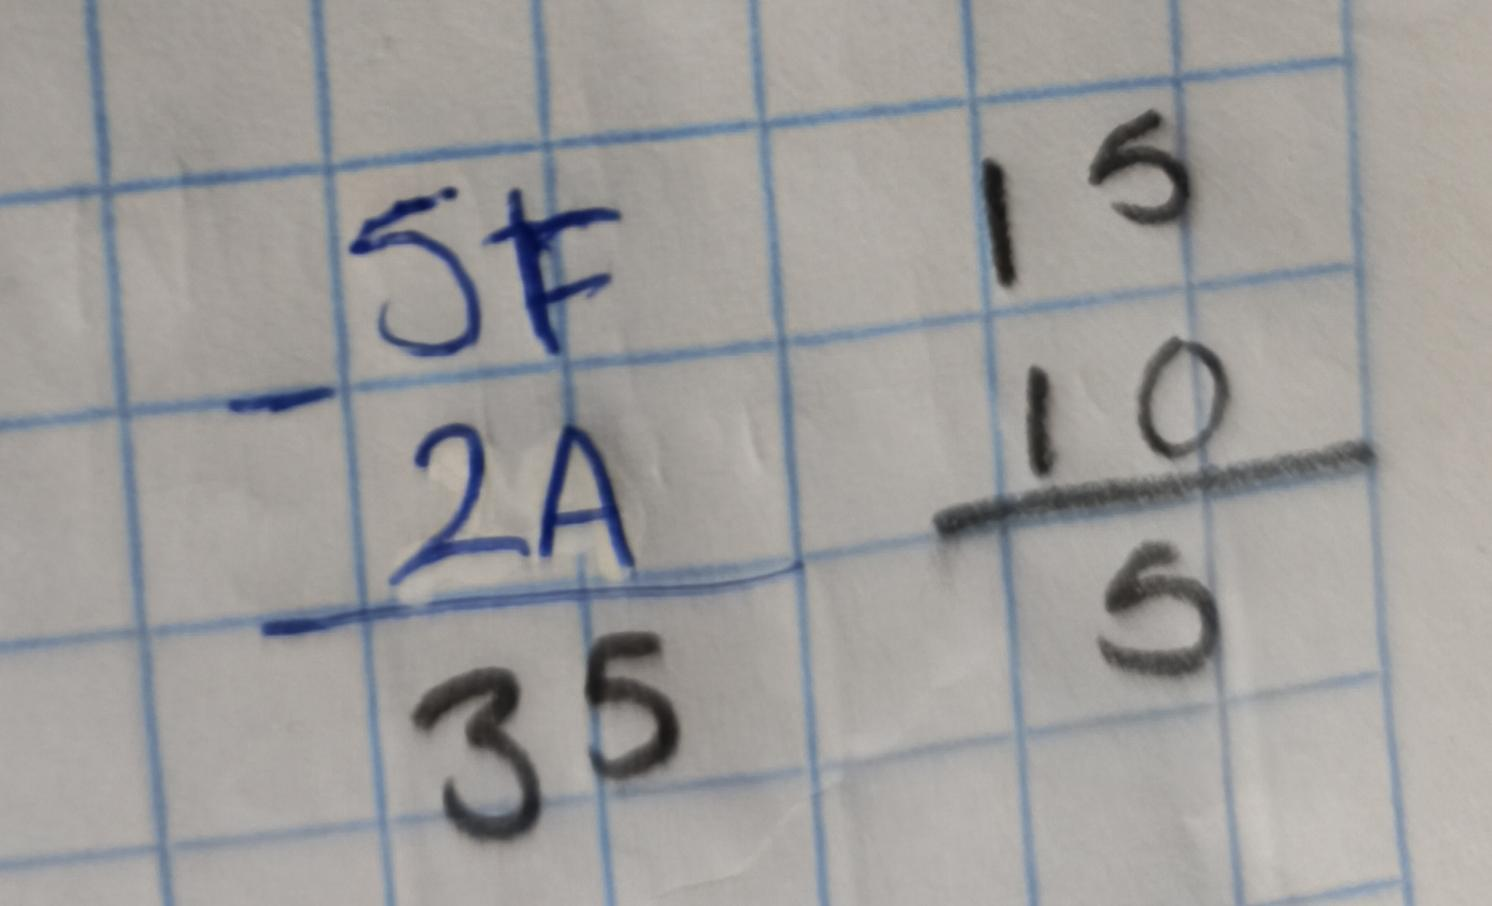 5F
- 2A
35
15
10
5